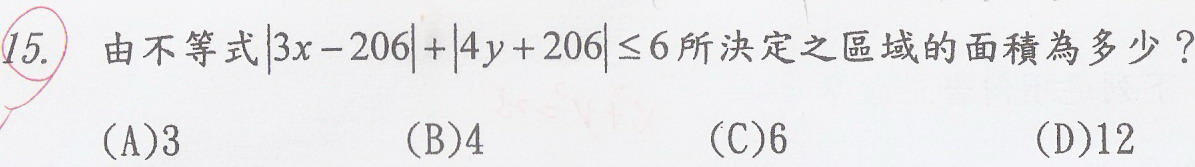 15. 由不等式|3x-206|+|4y+206|≤6所決定之區域的面積為多少?
(A)3 (B)4 (C)6 (D)12